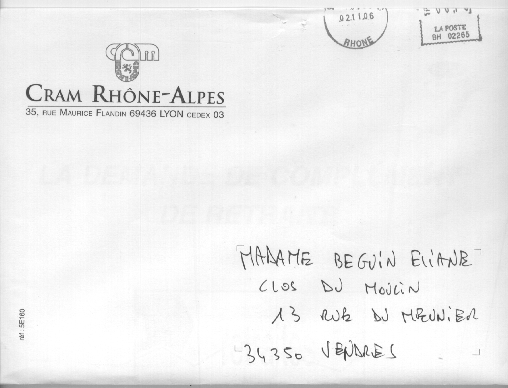 02.11.06
RHONE
LA POSTE
BH 02265
CRAM RHÔNE-ALPES
35, RUE MAURICE FLANDIN 69436 LYON CEDEX 03
LA DEMANDE DE COMPLEMENT
DE RETRAITE
MADAME BEGUIN ELIANE
CLOS DU MOULIN
13 RUE DU MEUNIER
34350 VENDRES
réf. SE160